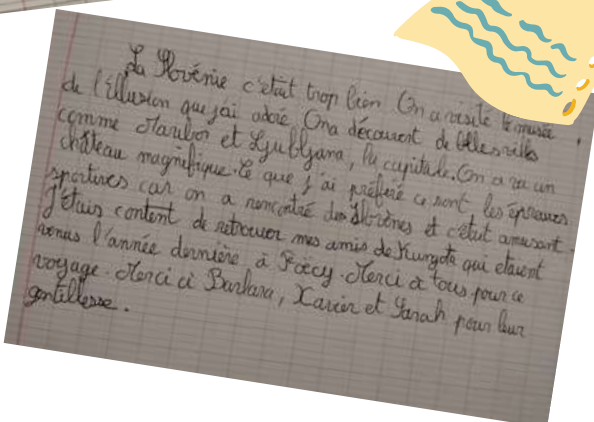 La Slovénie c'était trop bien. On a visité le musée
de l'Ellusion que j'ai adoré. On a découvert de belles villes
comme Maribor et Ljubljana, la capitale. On a vu un
château magnifique. Ce que j'ai préféré ce sont les épreuves
sportives car on a rencontré des Slovènes et c'était amusant.
J'étais content de retrouver mes amis de Kungota qui étaient
venus l'année dernière à Foëcy. Merci à tous pour ce
voyage. Merci à Barbara, Xavier et Sarah pour leur
gentillesse.